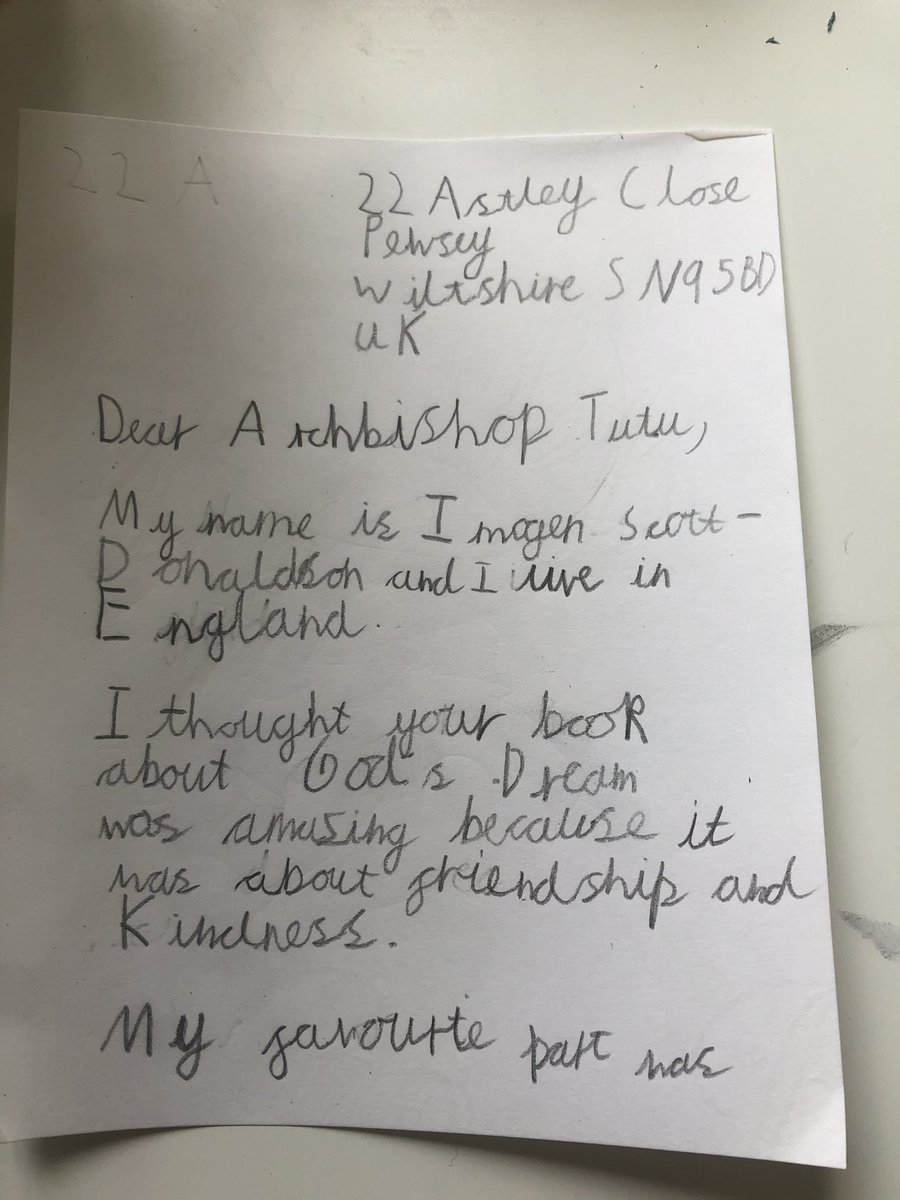 22 A
22 Astley Close
Pewsey
Wiltshire SN9 5BD
UK
Dear Archbishop Tutu,
My name is Imogen Scott-
Donaldson and I live in
England.
I thought your book
about God's Dream
was amazing because it
was about friendship and
Kindness.
My favourite part was